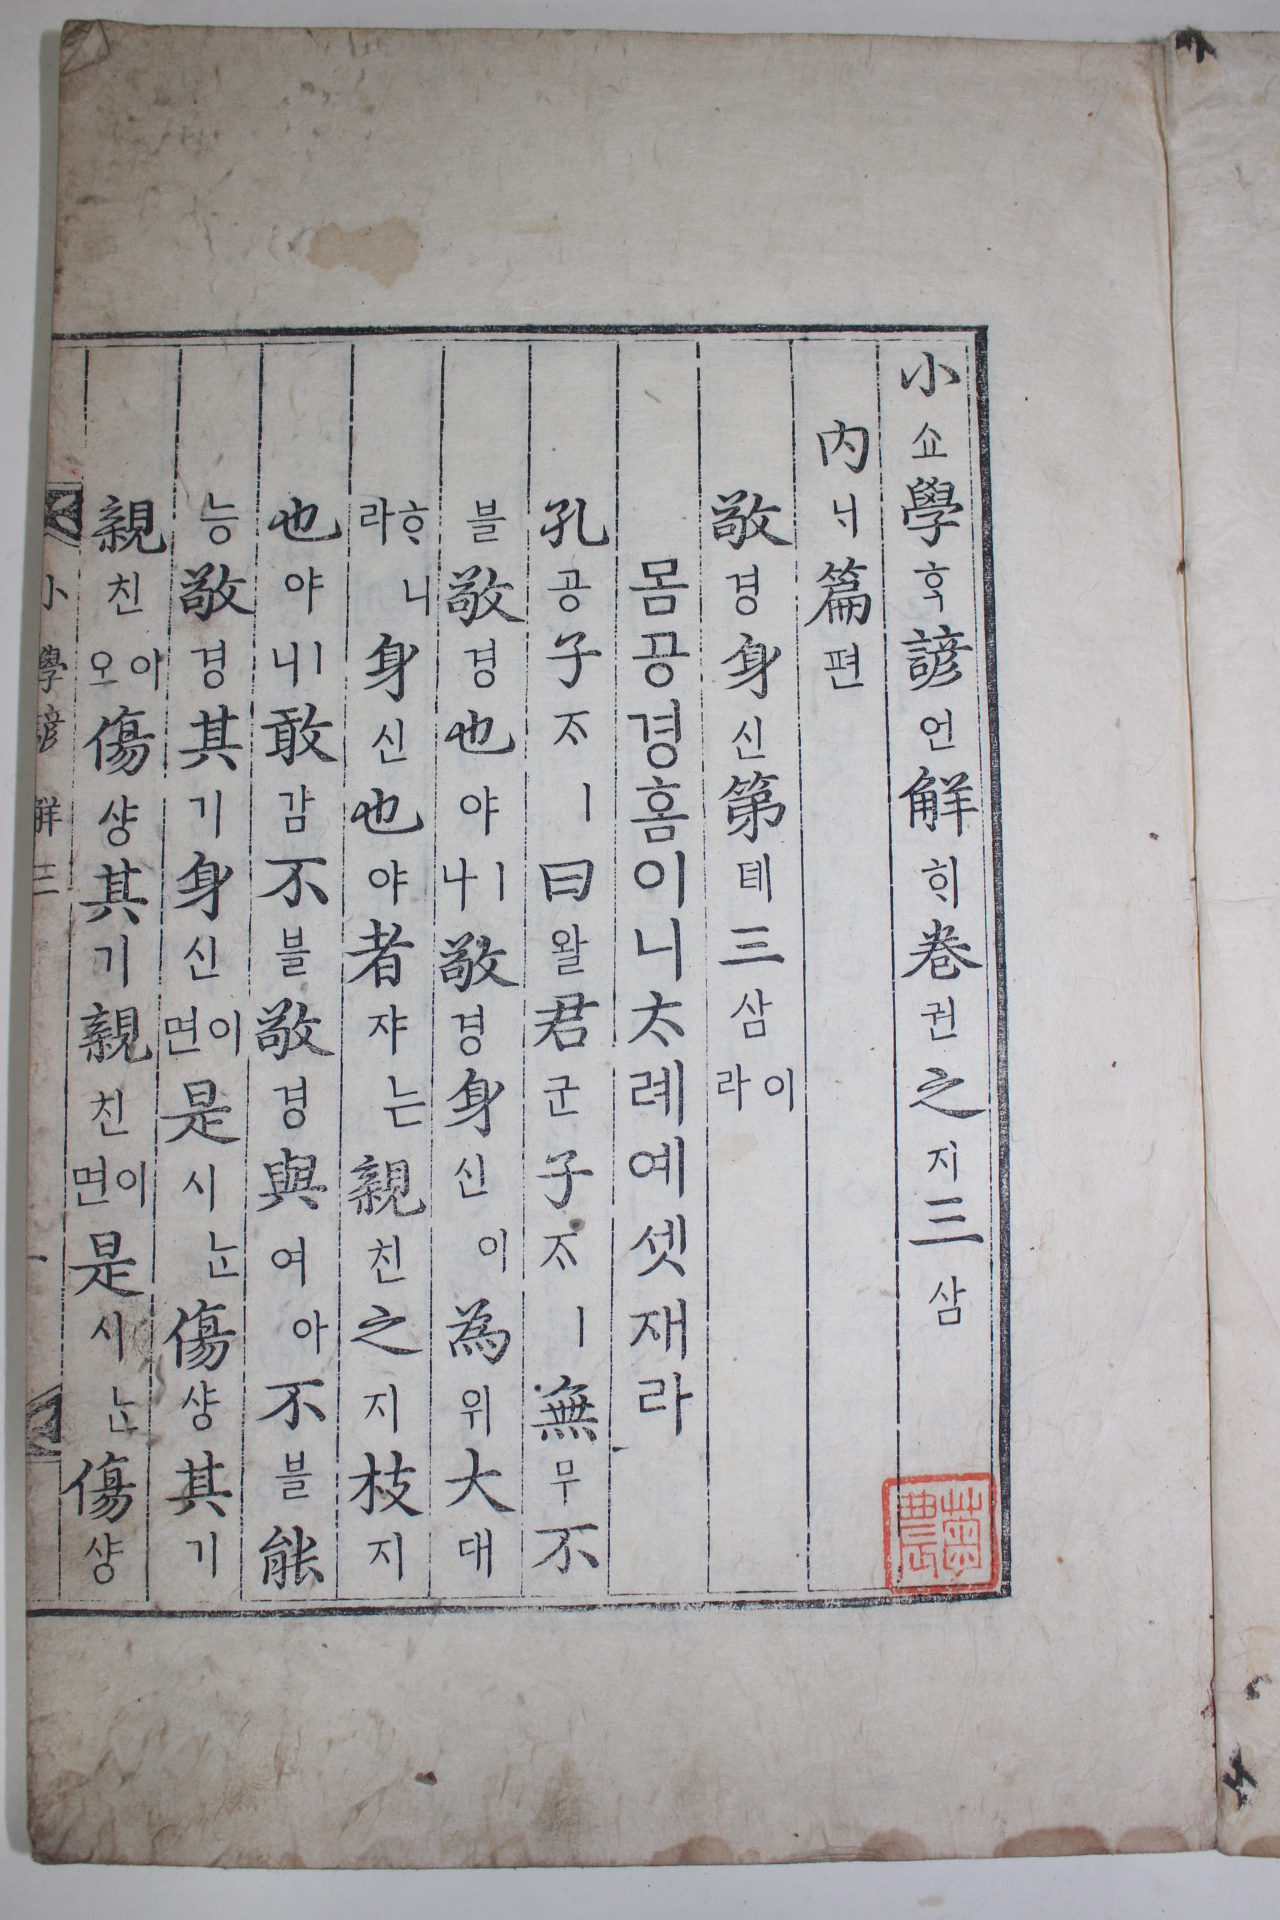 小쇼學ᄒᆞᆨ諺언解ᄒᆡ卷권之지三삼
內ᄂᆡ篇편
敬경身신第뎨三삼이라
몸공경홈이니ᄎᆞ례예셋재라
孔공子ᄌᆞㅣ曰왈君군子ᄌᆞㅣ無무不
블敬경也야ㅣ나敬경身신이爲위大대
ᄒᆞ니라身신也야者쟈ᄂᆞᆫ親친之지枝지
也야ㅣ니敢감不블敬경與여아不블能
능敬경其기身신이면是시ᄂᆞᆫ傷샹其기
親친아오傷샹其기親친이면是시ᄂᆞᆫ傷샹
小學諺解 三 一